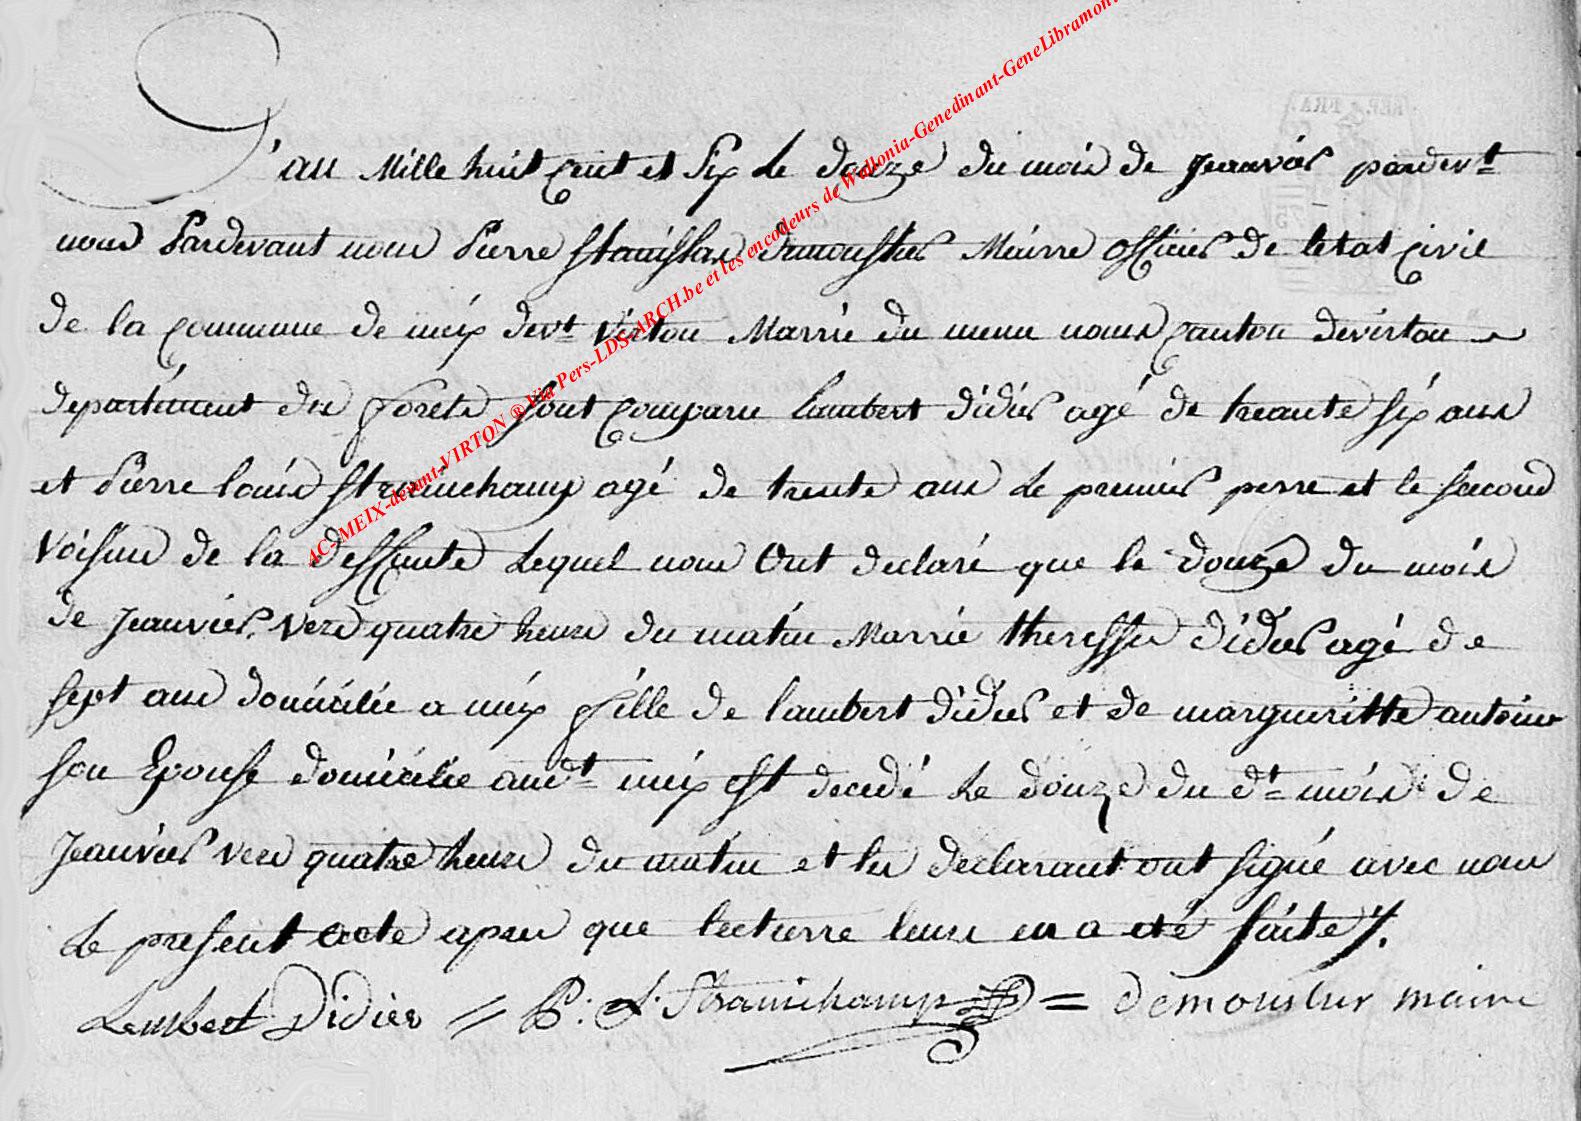 L'an Mille huit Cent et Six Le douze du mois de Jeanvier pardevt
nous Pardevant nous Pierre Stanislas Demoustier Meirre officier de letat Civil
de la Commune de meix devt Virton Marrie du meme nom Canton devirton
departement des forets sont Comparu Lambert didier agé de treante six ans
et Pierre louis Strainchamp agé de trente ans Le premier perre et le second
Voisin de la deffunte Lequel nous Ont declaré que le douze du mois
de Jeanvier vers quatre heure du matin Marrie theresse didier agé de
sept ans domiciliée a meix fille de lambert didier et de margueritte antoine
son Epouse domiciliée audt meix est decedé Le douze du dt mois de
Jeanvier vers quatre heure du matin et les declarant ont signé avec nous
Le present acte apres que lecturre leurs en a eté faite /.
Lembert Didier = P: L. Strainchamp = demoustier maire
AC-MEIX-devant-VIRTON ® Via Pers-LDS-ARCH.be et les encodeurs de Wallonia-Genedinant-GeneLibramont